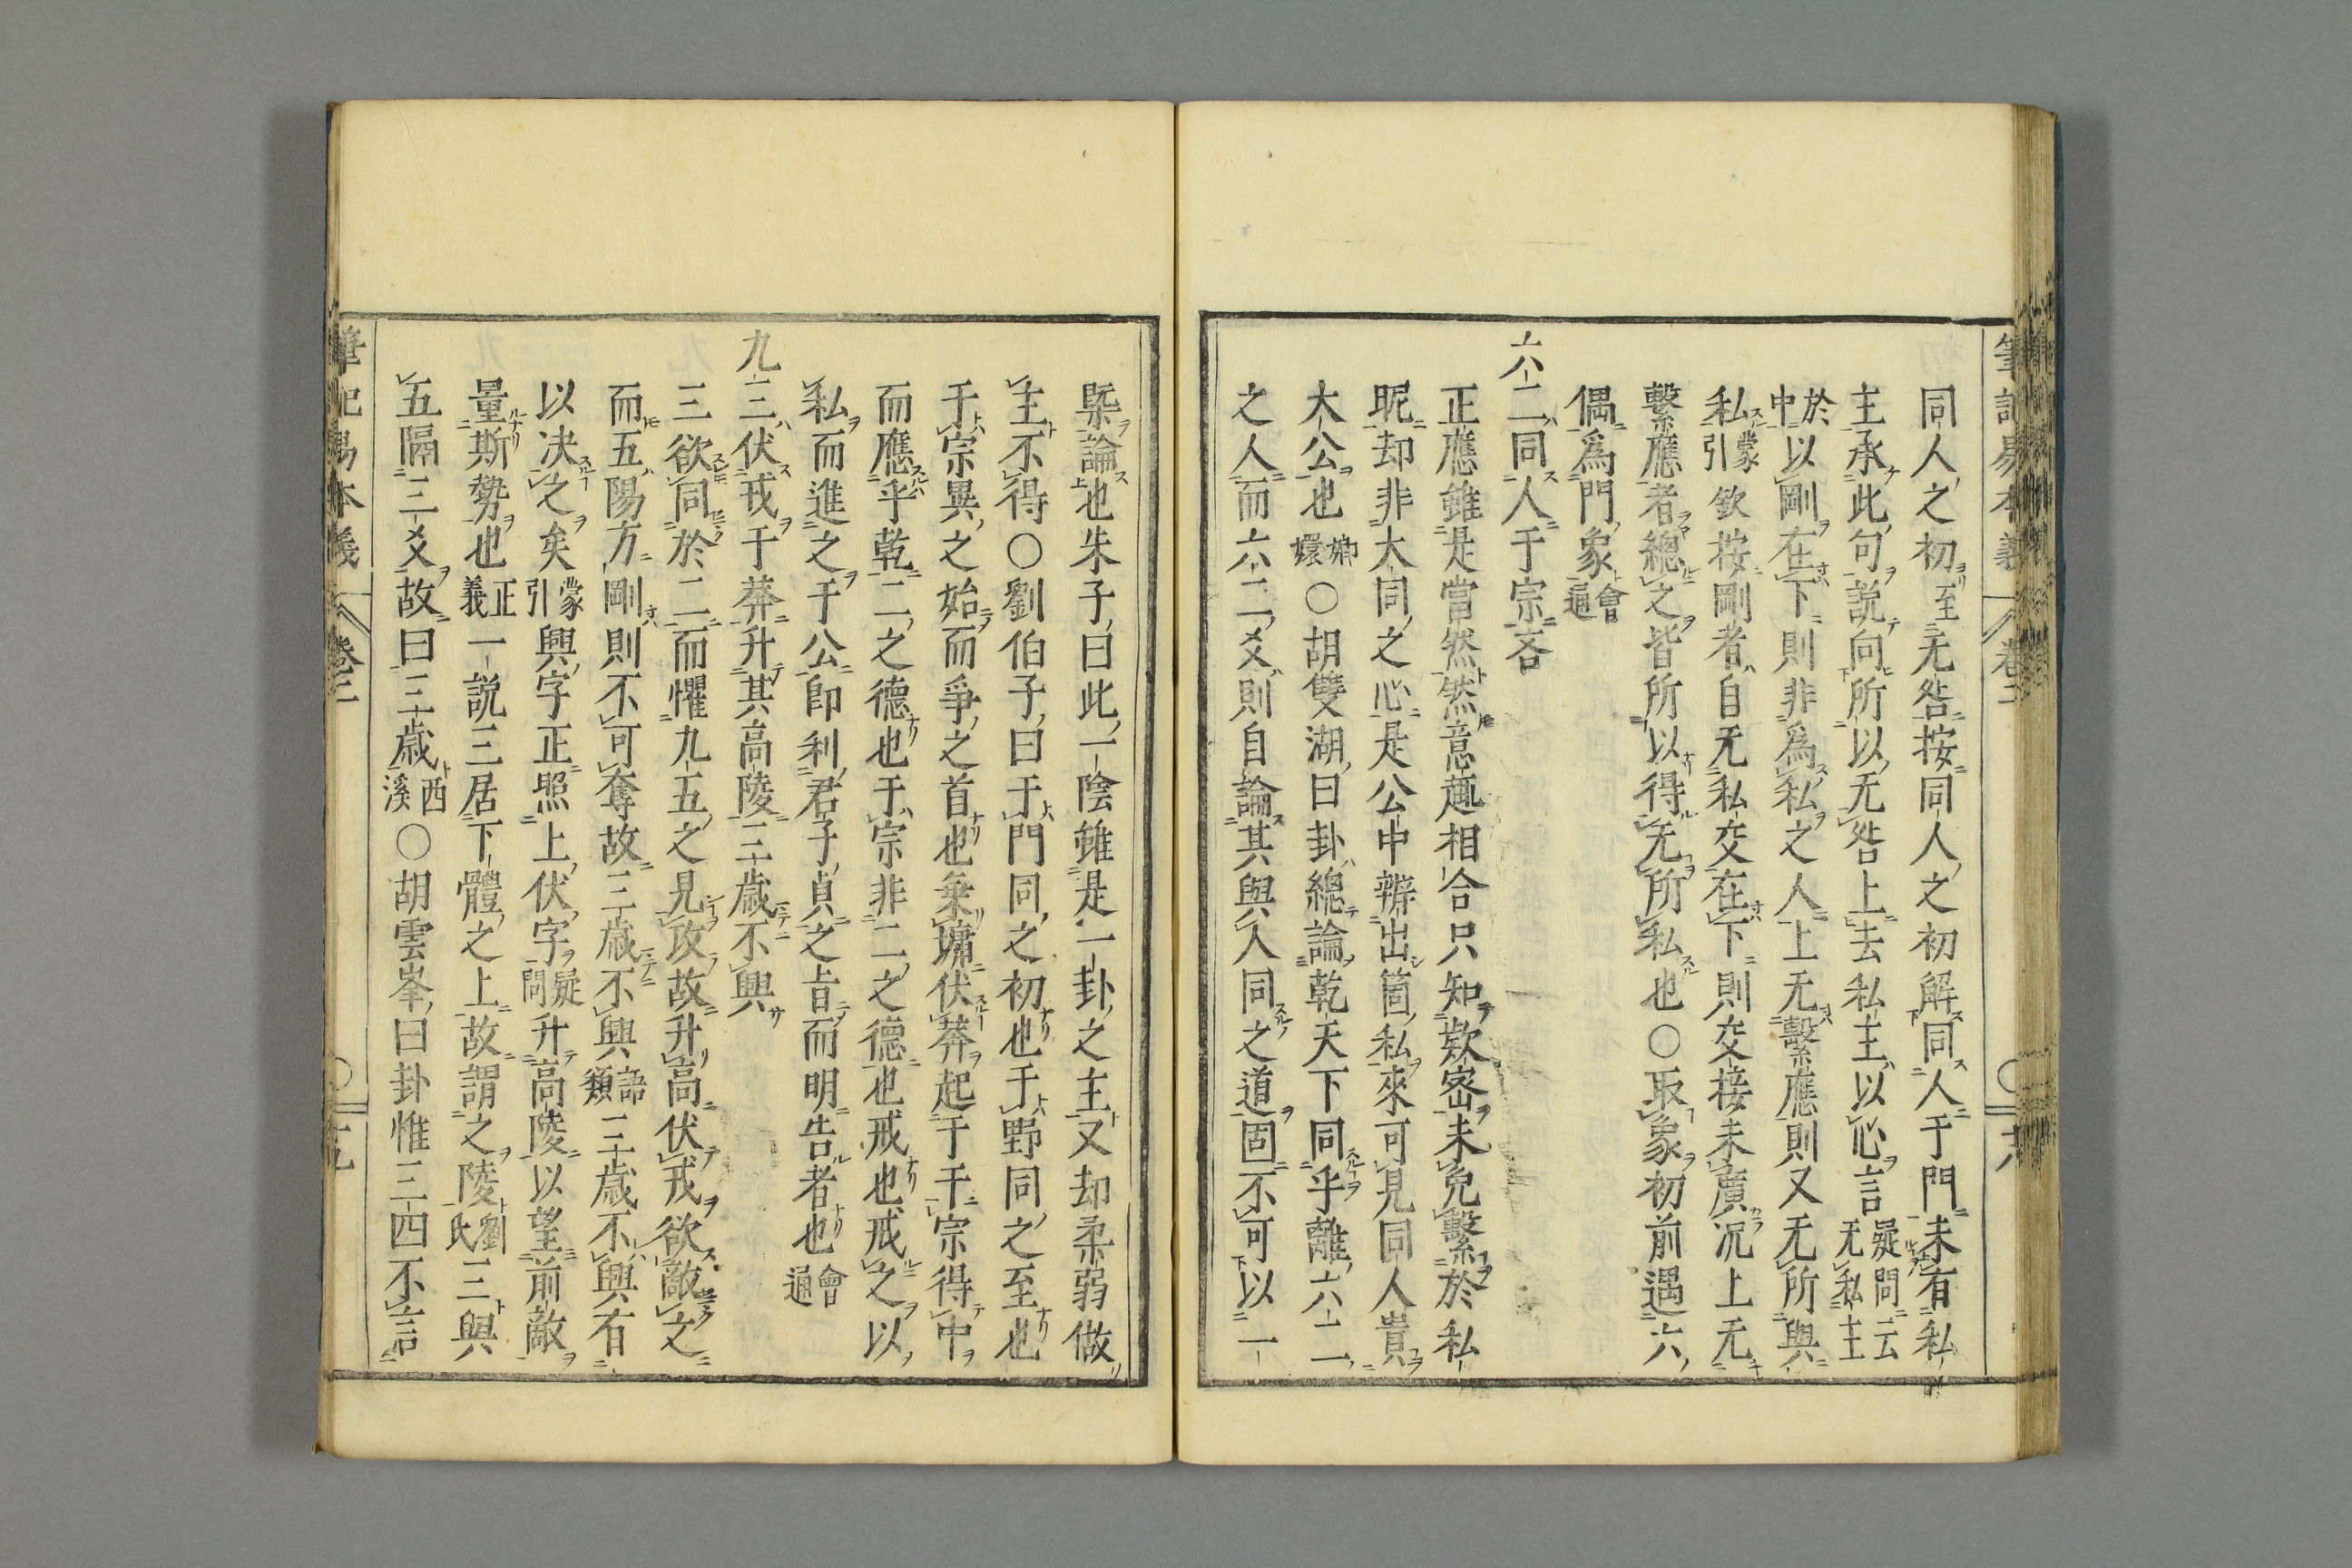 同人之初至无咎按同人之初解同人于門未有私
主承此句説向所以无咎上去私主以心言疑問云无私主
於中以剛在下則非爲私之人上无繫應則又无所與
私蒙引欽按剛者自无私交在下則交接未廣况上无
繫應者總之皆所以得无所私也〇取象初前遇六
偶爲門象會通
六二同人于宗吝
正應雖是當然然意趣相合只知欵密未免繫於私
昵却非大同之心是公中辨出箇私來可見同人貴
大公也嫏嬛〇胡雙湖曰卦總論乾天下同乎離六二
之人而六二爻則自論其與人同之道固不可以一
槩論也朱子曰此一陰雖是一卦之主又却柔弱做
主不得〇劉伯子曰于門同之初也于野同之至也
于宗異之始而爭之首也乗墉伏莽起于于宗得中
而應乎乾二之德也于宗非二之德也戒也戒之以
私而進之于公即利君子貞之旨而明告者也會通
九三伏戎于莽升其高陵三歳不興
三欲同於二而懼九五之見攻故升高伏戎欲敵之
而五陽方剛則不可奪故三歳不興語類三歳不興有
以决之矣蒙引興字正照上伏字疑問升高陵以望前敵
量斯勢也正義一説三居下體之上故謂之陵劉氏三與
五隔三爻故曰三歳西溪〇胡雲峯曰卦惟三四不言
筆記易本義
卷二
十八
筆記易本義
卷二
十九